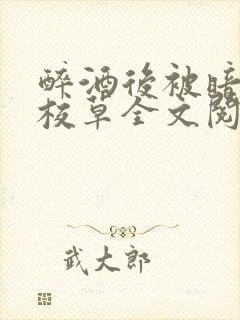 醉酒後被暗
校草全文閱
武大郎